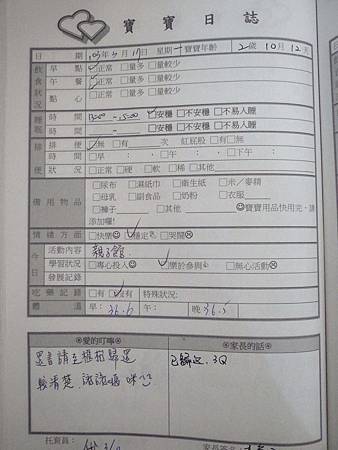 寶寶日誌
日期 103年3月17日 星期一 寶寶年齡 2歲10月12天
飲食狀況 早點 ☑正常 □量多 □量較少
午餐 ☑正常 □量多 □量較少
點心 □正常 □量多 □量較少
睡眠 時間 13:00 - 15:00 ☑安穩 □不安穩 □不易入睡
時間 - □安穩 □不安穩 □不易入睡
排便狀況 排便 ☑無 □有 次 紅屁股 □有□無
時間 □早: □午: □下午:
便狀 □正常 □硬 □軟 □稀 □其他
備用物品 □尿布 □濕紙巾 □衛生紙 □米/麥精
□母乳 □副食品 □奶粉 □衣服
□褲子 □其他 ☺寶寶用品快用完,請
添加喔!
情緒方面 □快樂☺ ☑穩定 □哭鬧☹
今日 活動內容 親子館
學習狀況 □專心投入 ☑樂於參與 □無心活動
發展記錄
吃藥記錄 □有 ☑沒有 特殊狀況:
體溫 早:36.6 午: 晚36.5
愛的叮嚀 家長的話
還書請至櫃檯歸還 已歸還,3Q
較清楚,謝謝媽咪^^
托育員: 家長簽名: